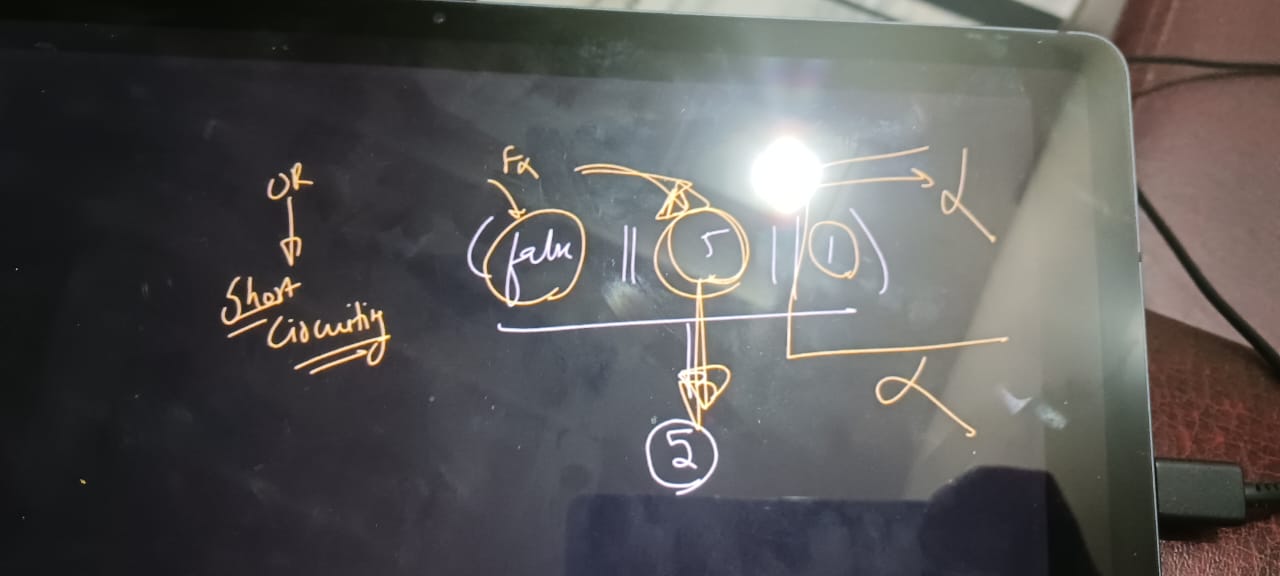 OR
Short
Circuiting
Fα
(false || 5 || 1)
5